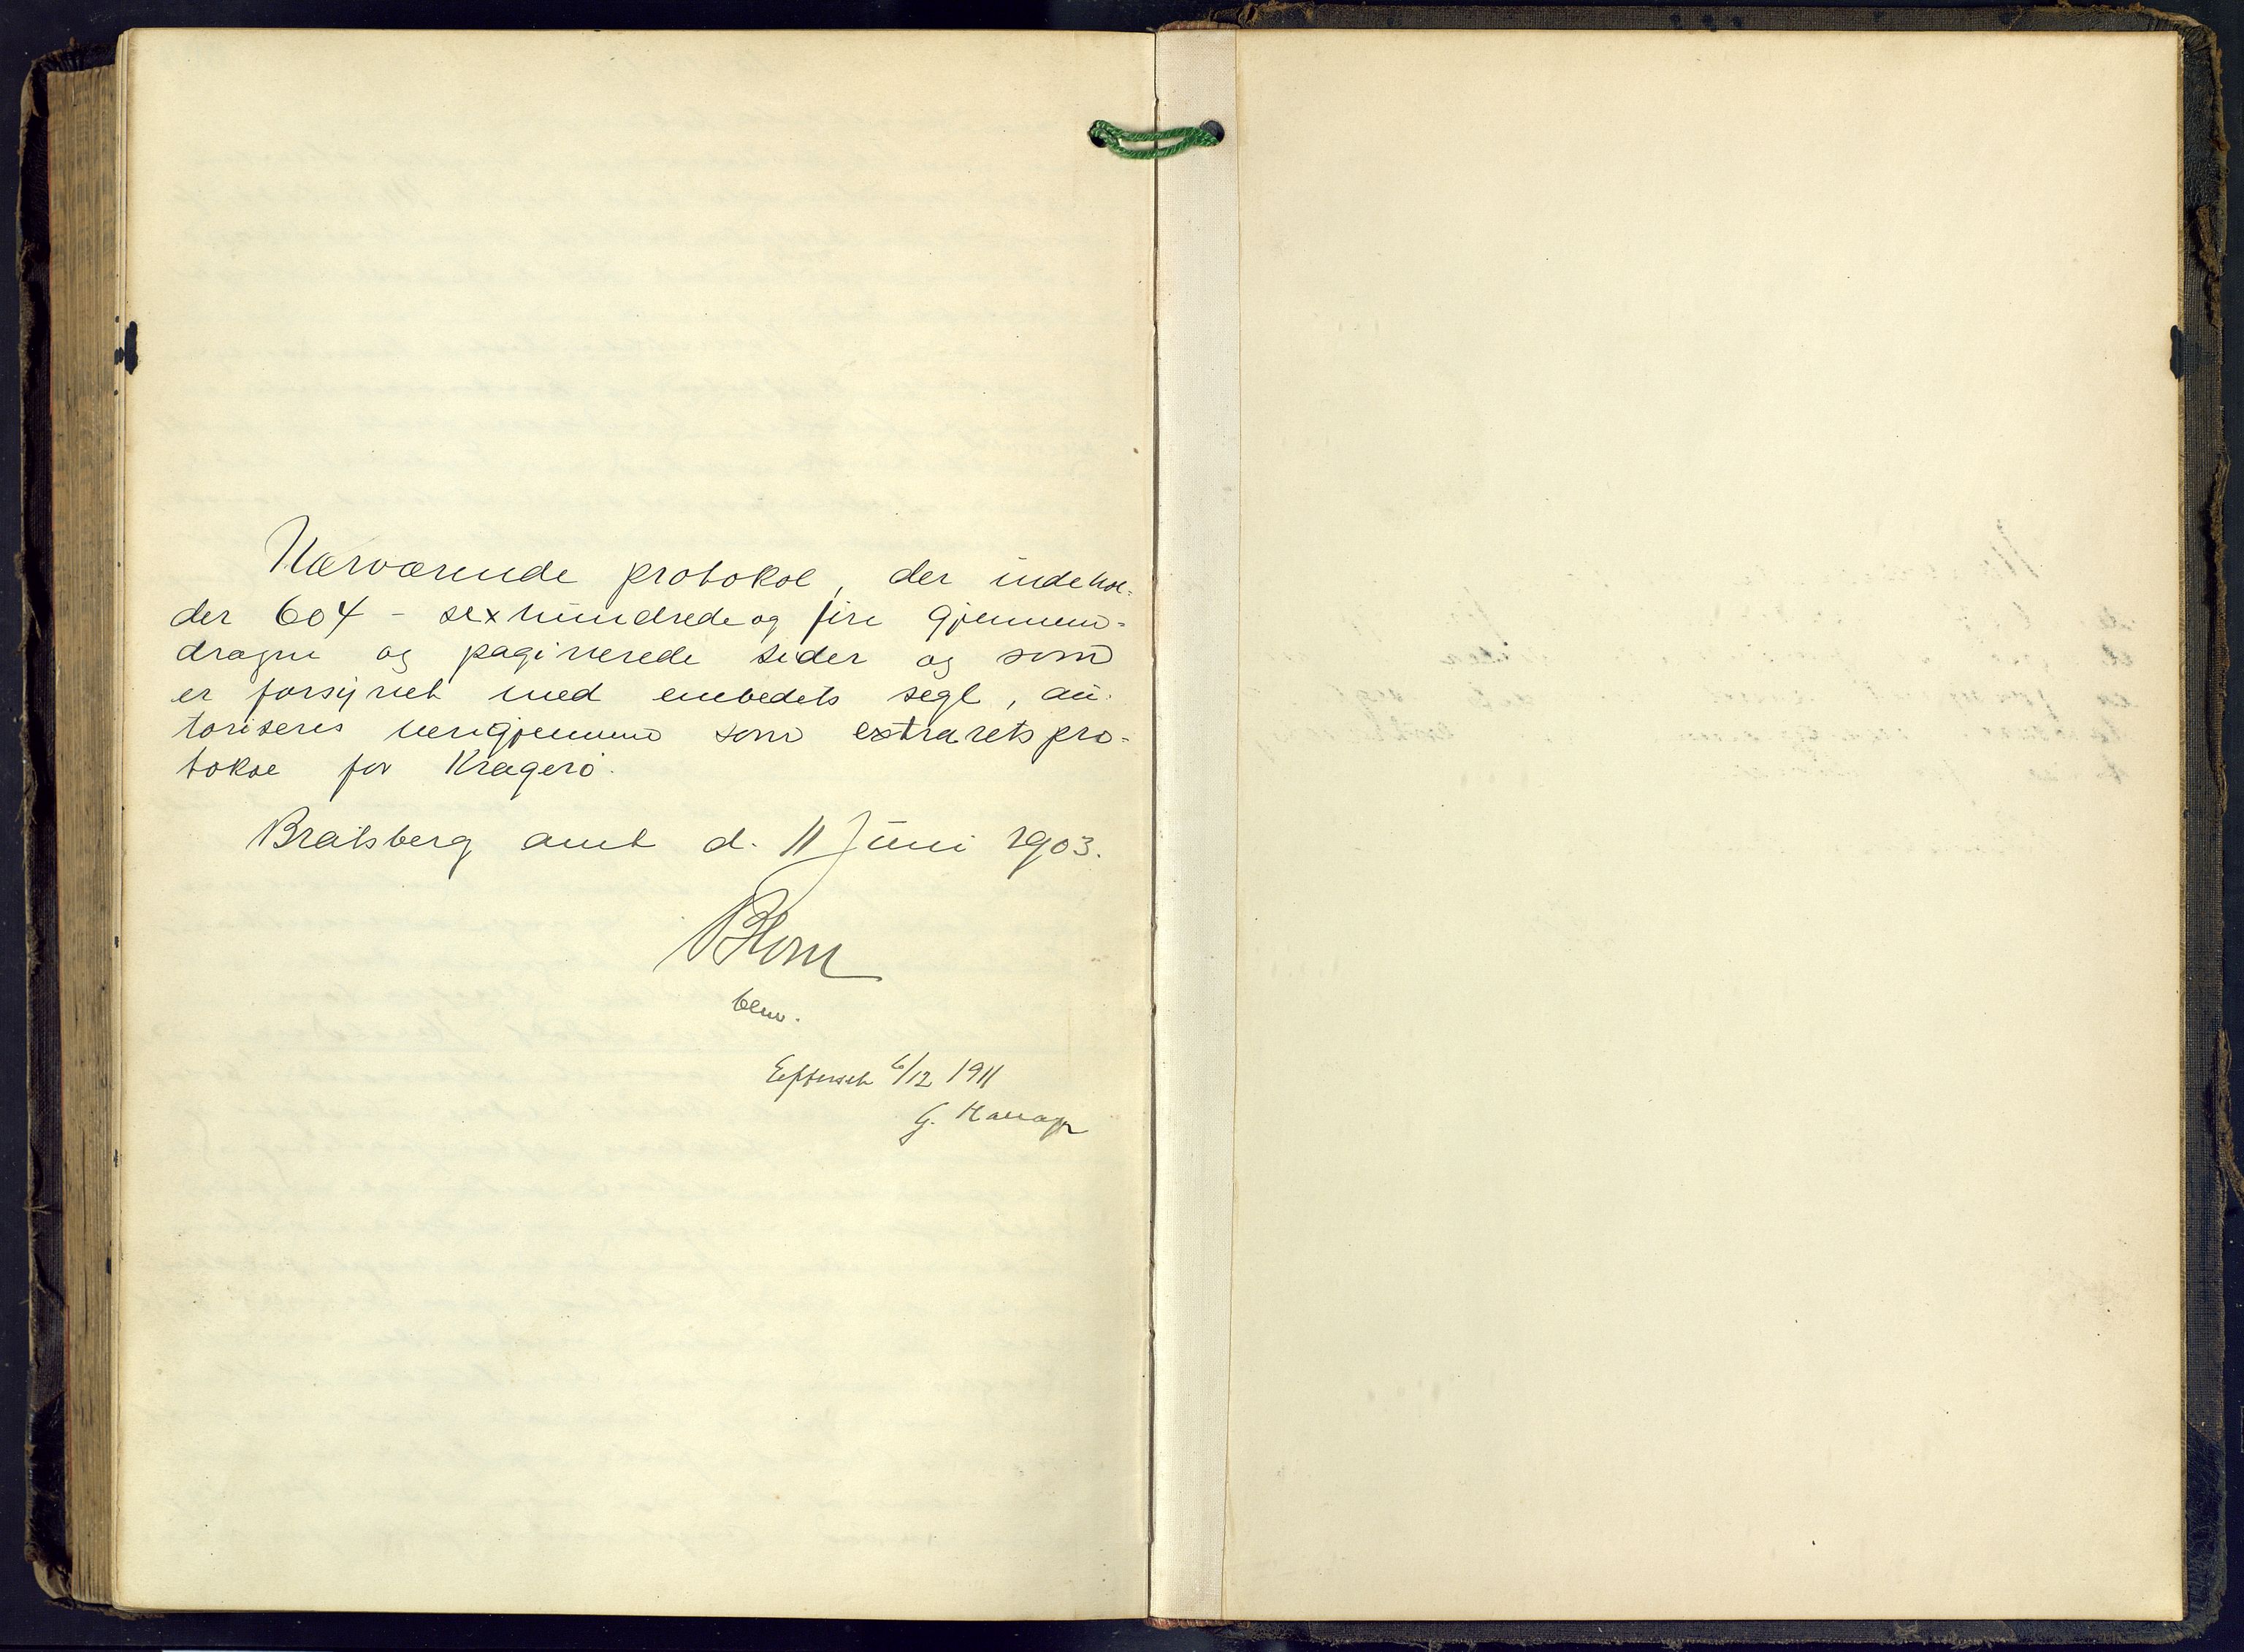 Nærværende protokol, der indehol-
der 604 - sexhundrede og fire gjennem-
dragne og paginerede sider og som
er forsynet med embedets segl, au-
toriseres herigjennem som extraretspro-
tokol for Kragerø.
Bratsberg amt d. 11 Juni 1903.
Blom
Efterseet 6/12 1911
G.